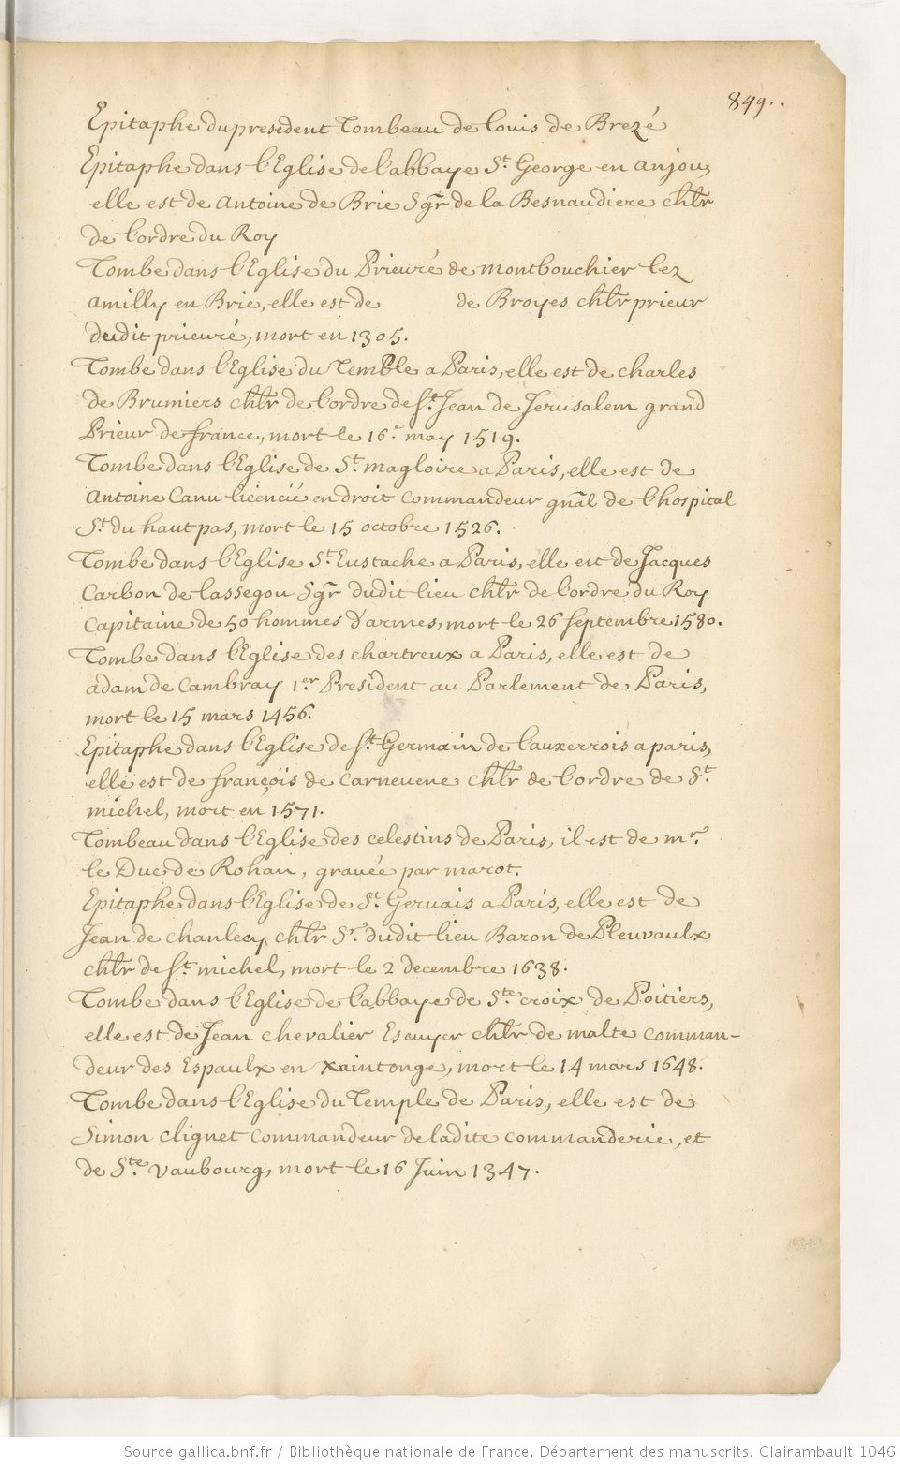 849..
Epitaphe du president Tombeau de Louis de Brezé
Epitaphe dans l'Eglise de l'abbaye St. George en anjou,
elle est de Antoine de Brie Sgr. de la Besnaudiere chlr
de l'ordre du Roy
Tombe dans l'Eglise du Prieuré de montbouchier lez
amilly en Brie, elle est de de Broyes chlr prieur
dudit prieuré, mort en 1305.
Tombe dans l'Eglise du Temple a Paris, elle est de charles
de Brumiers chlr de l'ordre de St. Jean de Jerusalem grand
Prieur de france, mort le 16e may 1519.
Tombe dans l'Eglise de St. magloire a Paris, elle est de
Antoine Canu licencié en droit commandeur gñal de l'hospital
St. du hautpas, mort le 15 octobre 1526.
Tombe dans l'Eglise St. Eustache a Paris, elle est de Jacques
Carbon de lassegou Sgr dudit lieu chlr de l'ordre du Roy
Capitaine de 50 hommes d'armes, mort le 26 septembre 1580.
Tombe dans l'Eglise des chartreux a Paris, elle est de
adam de Cambray 1er President au Parlement de Paris,
mort le 15 mars 1456.
Epitaphe dans l'Eglise de St. Germain de l'auxerrois a paris,
elle est de françois de carnevene chlr de l'ordre de St.
michel, mort en 1571.
Tombeau dans l'Eglise des celestins de Paris, il est de mr.
le Duc de Rohan, gravée par marot.
Epitaphe dans l'Eglise de St. Gervais a Paris, elle est de
Jean de chanlecy chlr Sr. dudit lieu Baron de Pleuvaulx
chlr de St. michel, mort le 2 decembre 1638.
Tombe dans l'Eglise de l'abbaye de Ste croix de Poitiers,
elle est de Jean chevalier Escuyer chlr de malte comman-
deur des Espaulx en Xaintonge, mort le 14 mars 1648.
Tombe dans l'Eglise du Temple de Paris, elle est de
Simon clignet commandeur de ladite commanderie, et
de Ste. vaubourg, mort le 16 Juin 1347.
Source gallica.bnf.fr / Bibliothèque nationale de France. Département des manuscrits. Clairambault 1046